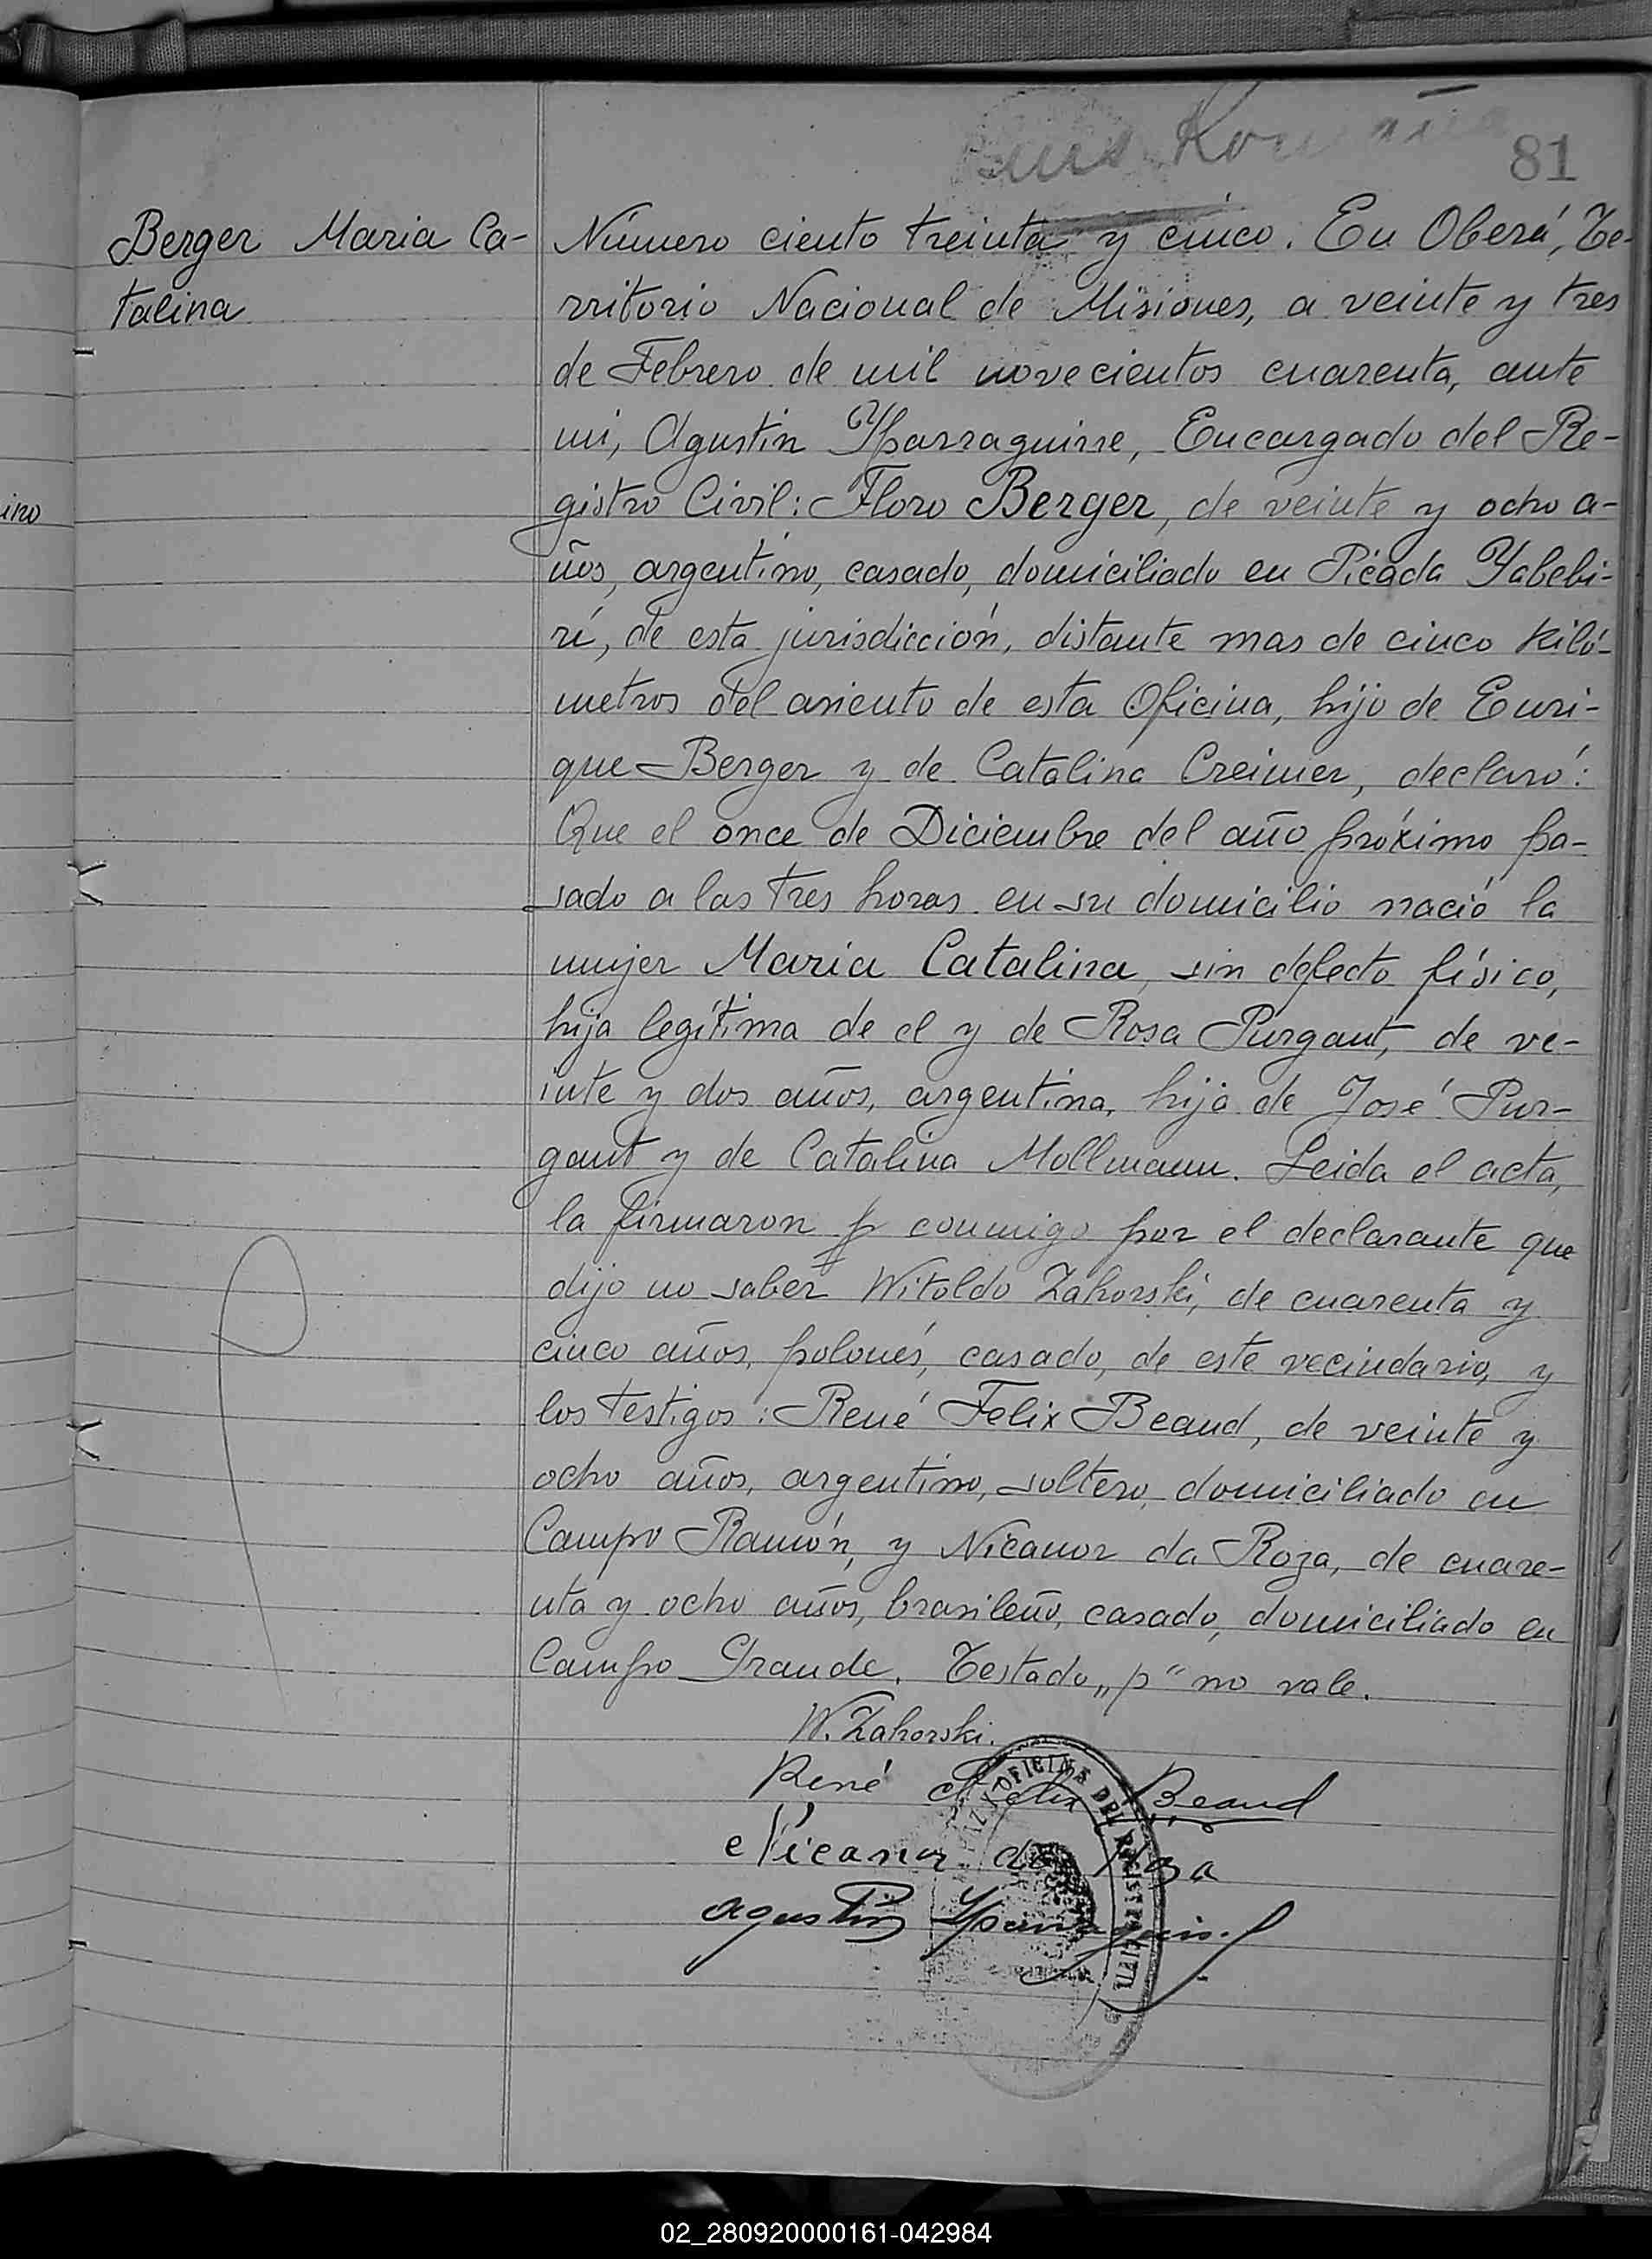 81
Berger Maria Ca-
talina
ino
Número ciento treinta y cinco. En Oberá, Te-
rritorio Nacional de Misiones, a veinte y tres
de Febrero de mil novecientos cuarenta, ante
mi, Agustin Yparraguirre, Encargado del Re-
gistro Civil: Floro Berger, de veinte y ocho a-
ños, argentino, casado, domiciliado en Picada Yabebi-
rí, de esta jurisdicción, distante mas de cinco kiló-
metros del asiento de esta Oficina, hijo de Enri-
que Berger y de Catalina Creimer, declaró:
Que el once de Diciembre del año próximo pa-
sado a las tres horas en su domicilio nació la
mujer Maria Catalina, sin defecto físico,
hija legítima de el y de Rosa Purgant, de ve-
inte y dos años, argentina, hija de José Pur-
gant y de Catalina Mollmann. Leida el acta,
la firmaron p conmigo por el declarante que
dijo no saber Witoldo Zahorski, de cuarenta y
cinco años, polonés, casado, de este vecindario, y
los testigos: René Felix Beaud, de veinte y
ocho años, argentino, soltero, domiciliado en
Campo Ramón, y Nicanor da Roza, de cuare-
nta y ocho años, brasileño, casado, domiciliado en
Campo Grande. Testado „p“ no vale.
W. Zahorski.
René Felix Beaud
Nicanor da Roza
Agustin Yparraguirre
OFICINA DEL REGISTRO CIVIL
02_280920000161-042984